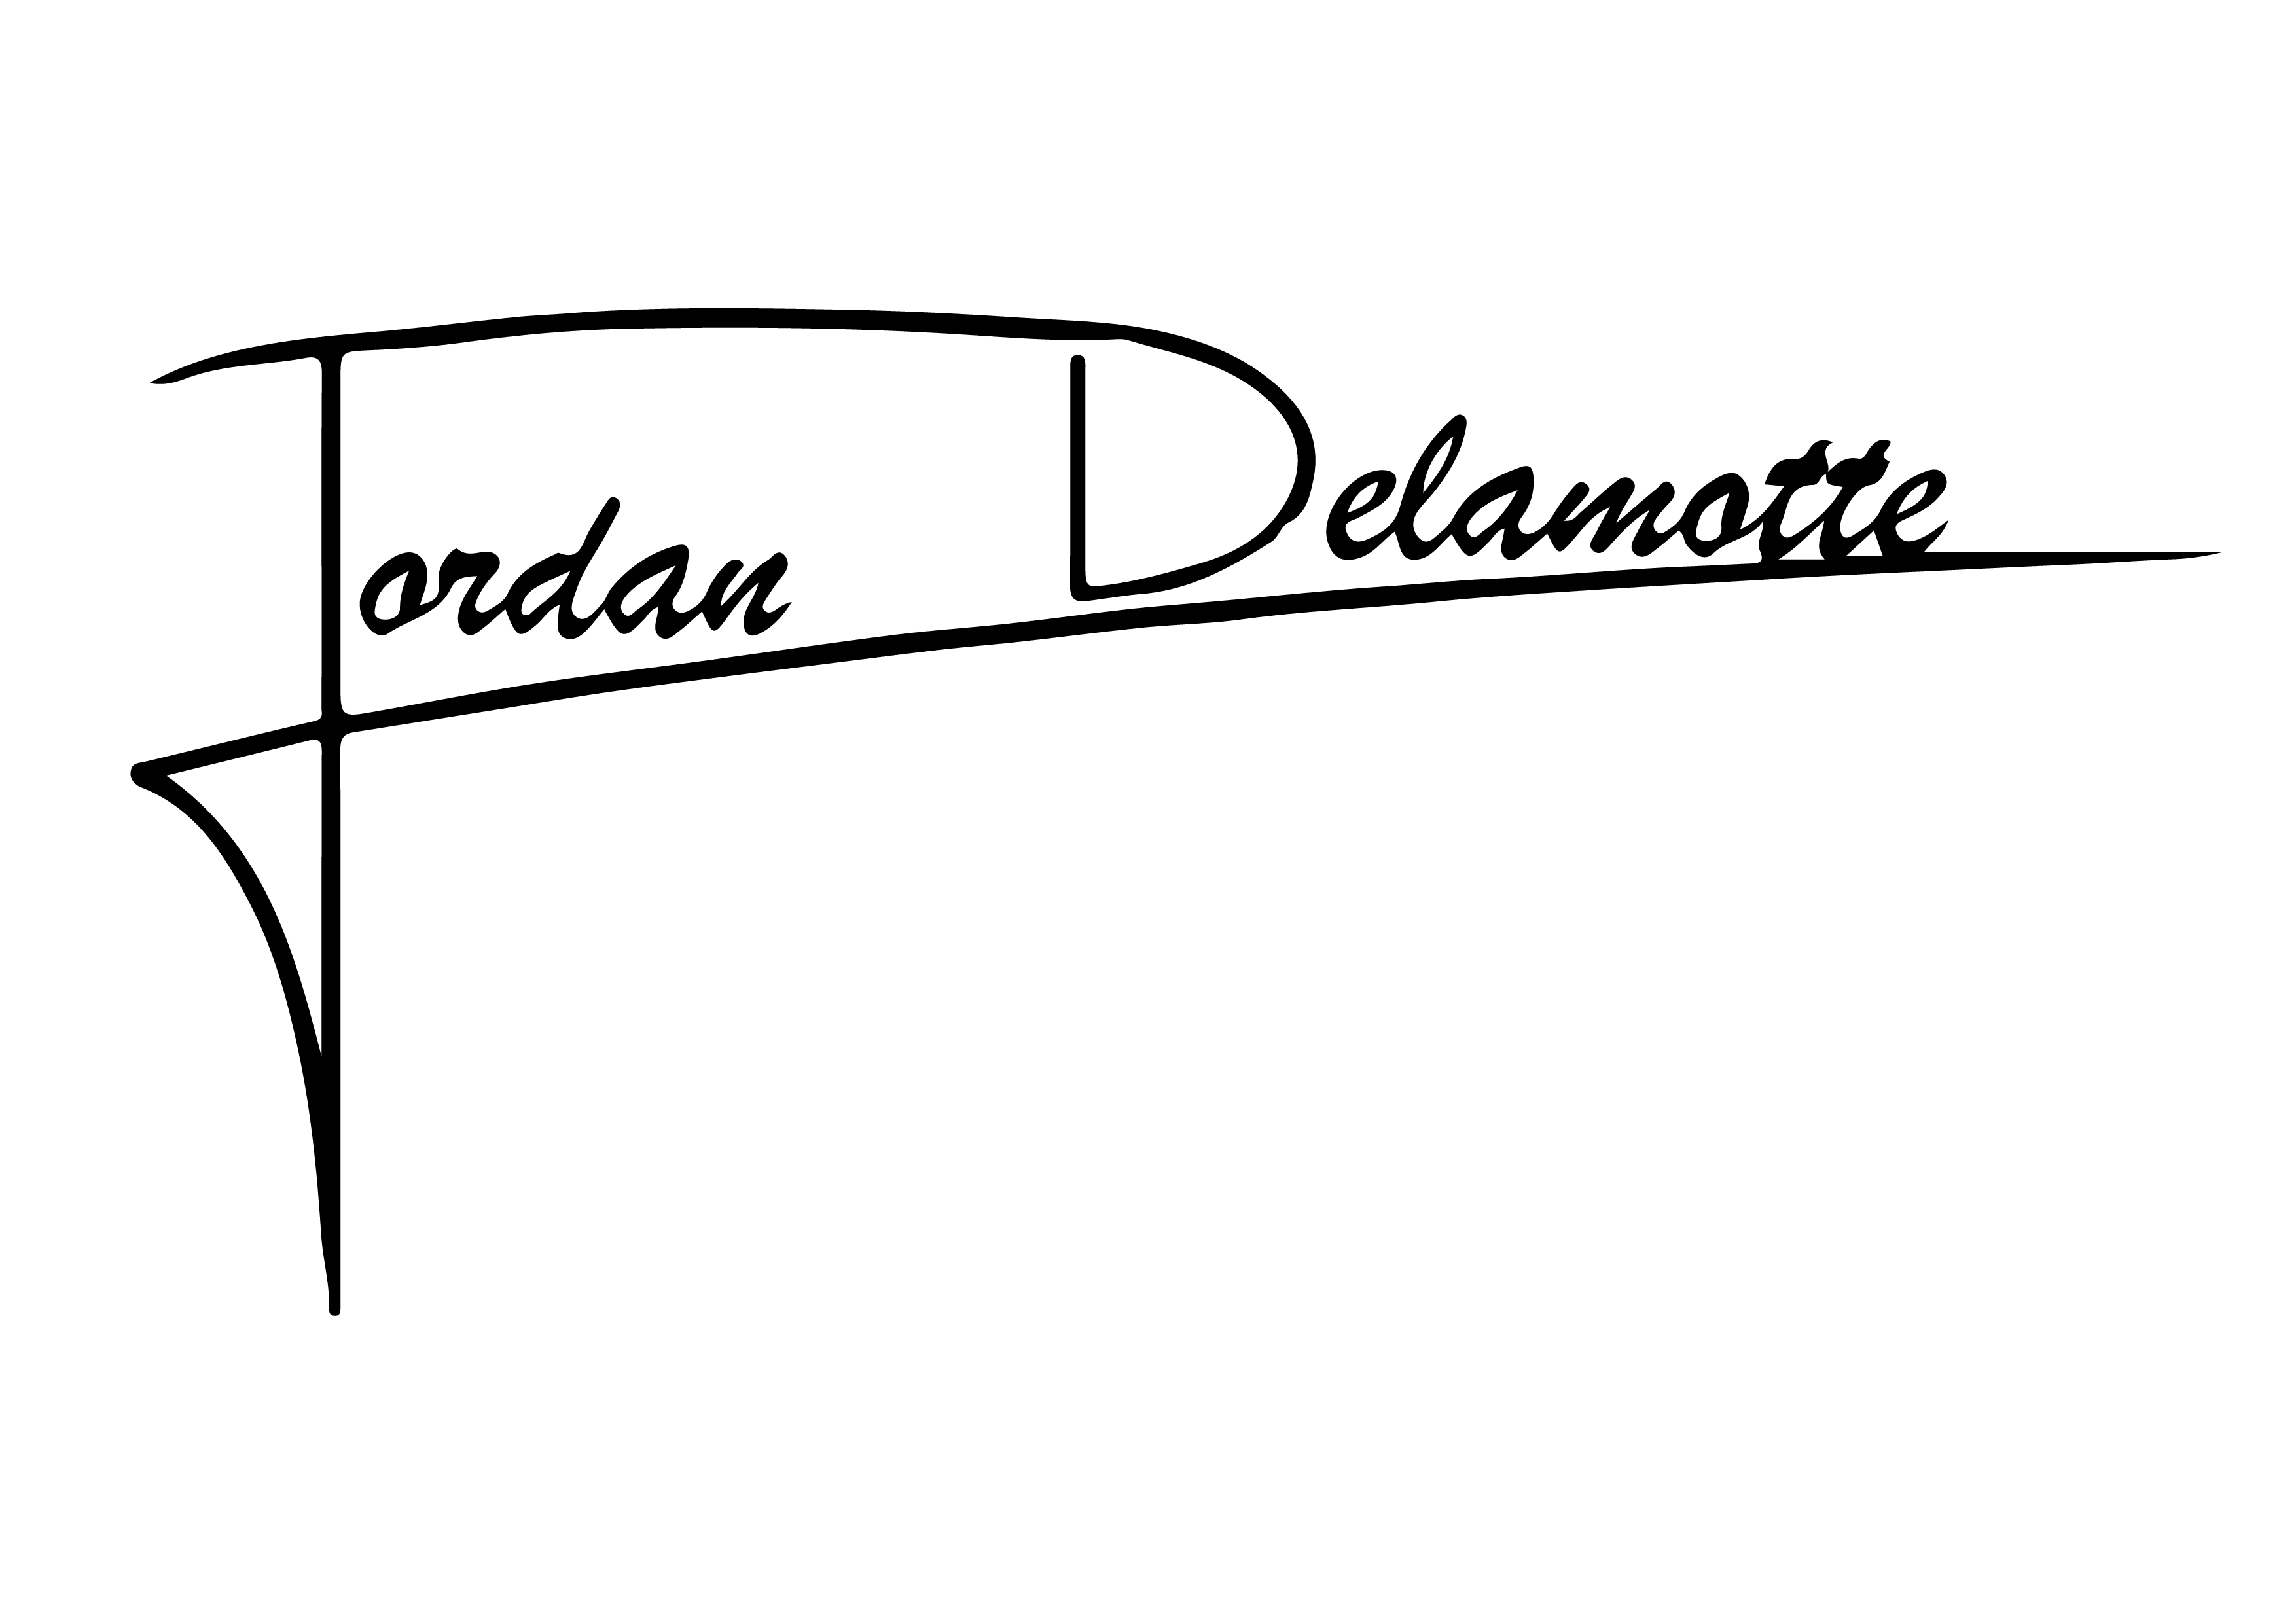 Jordan Delamotte